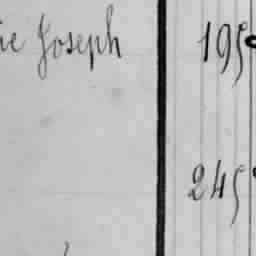 ie Joseph 195
245